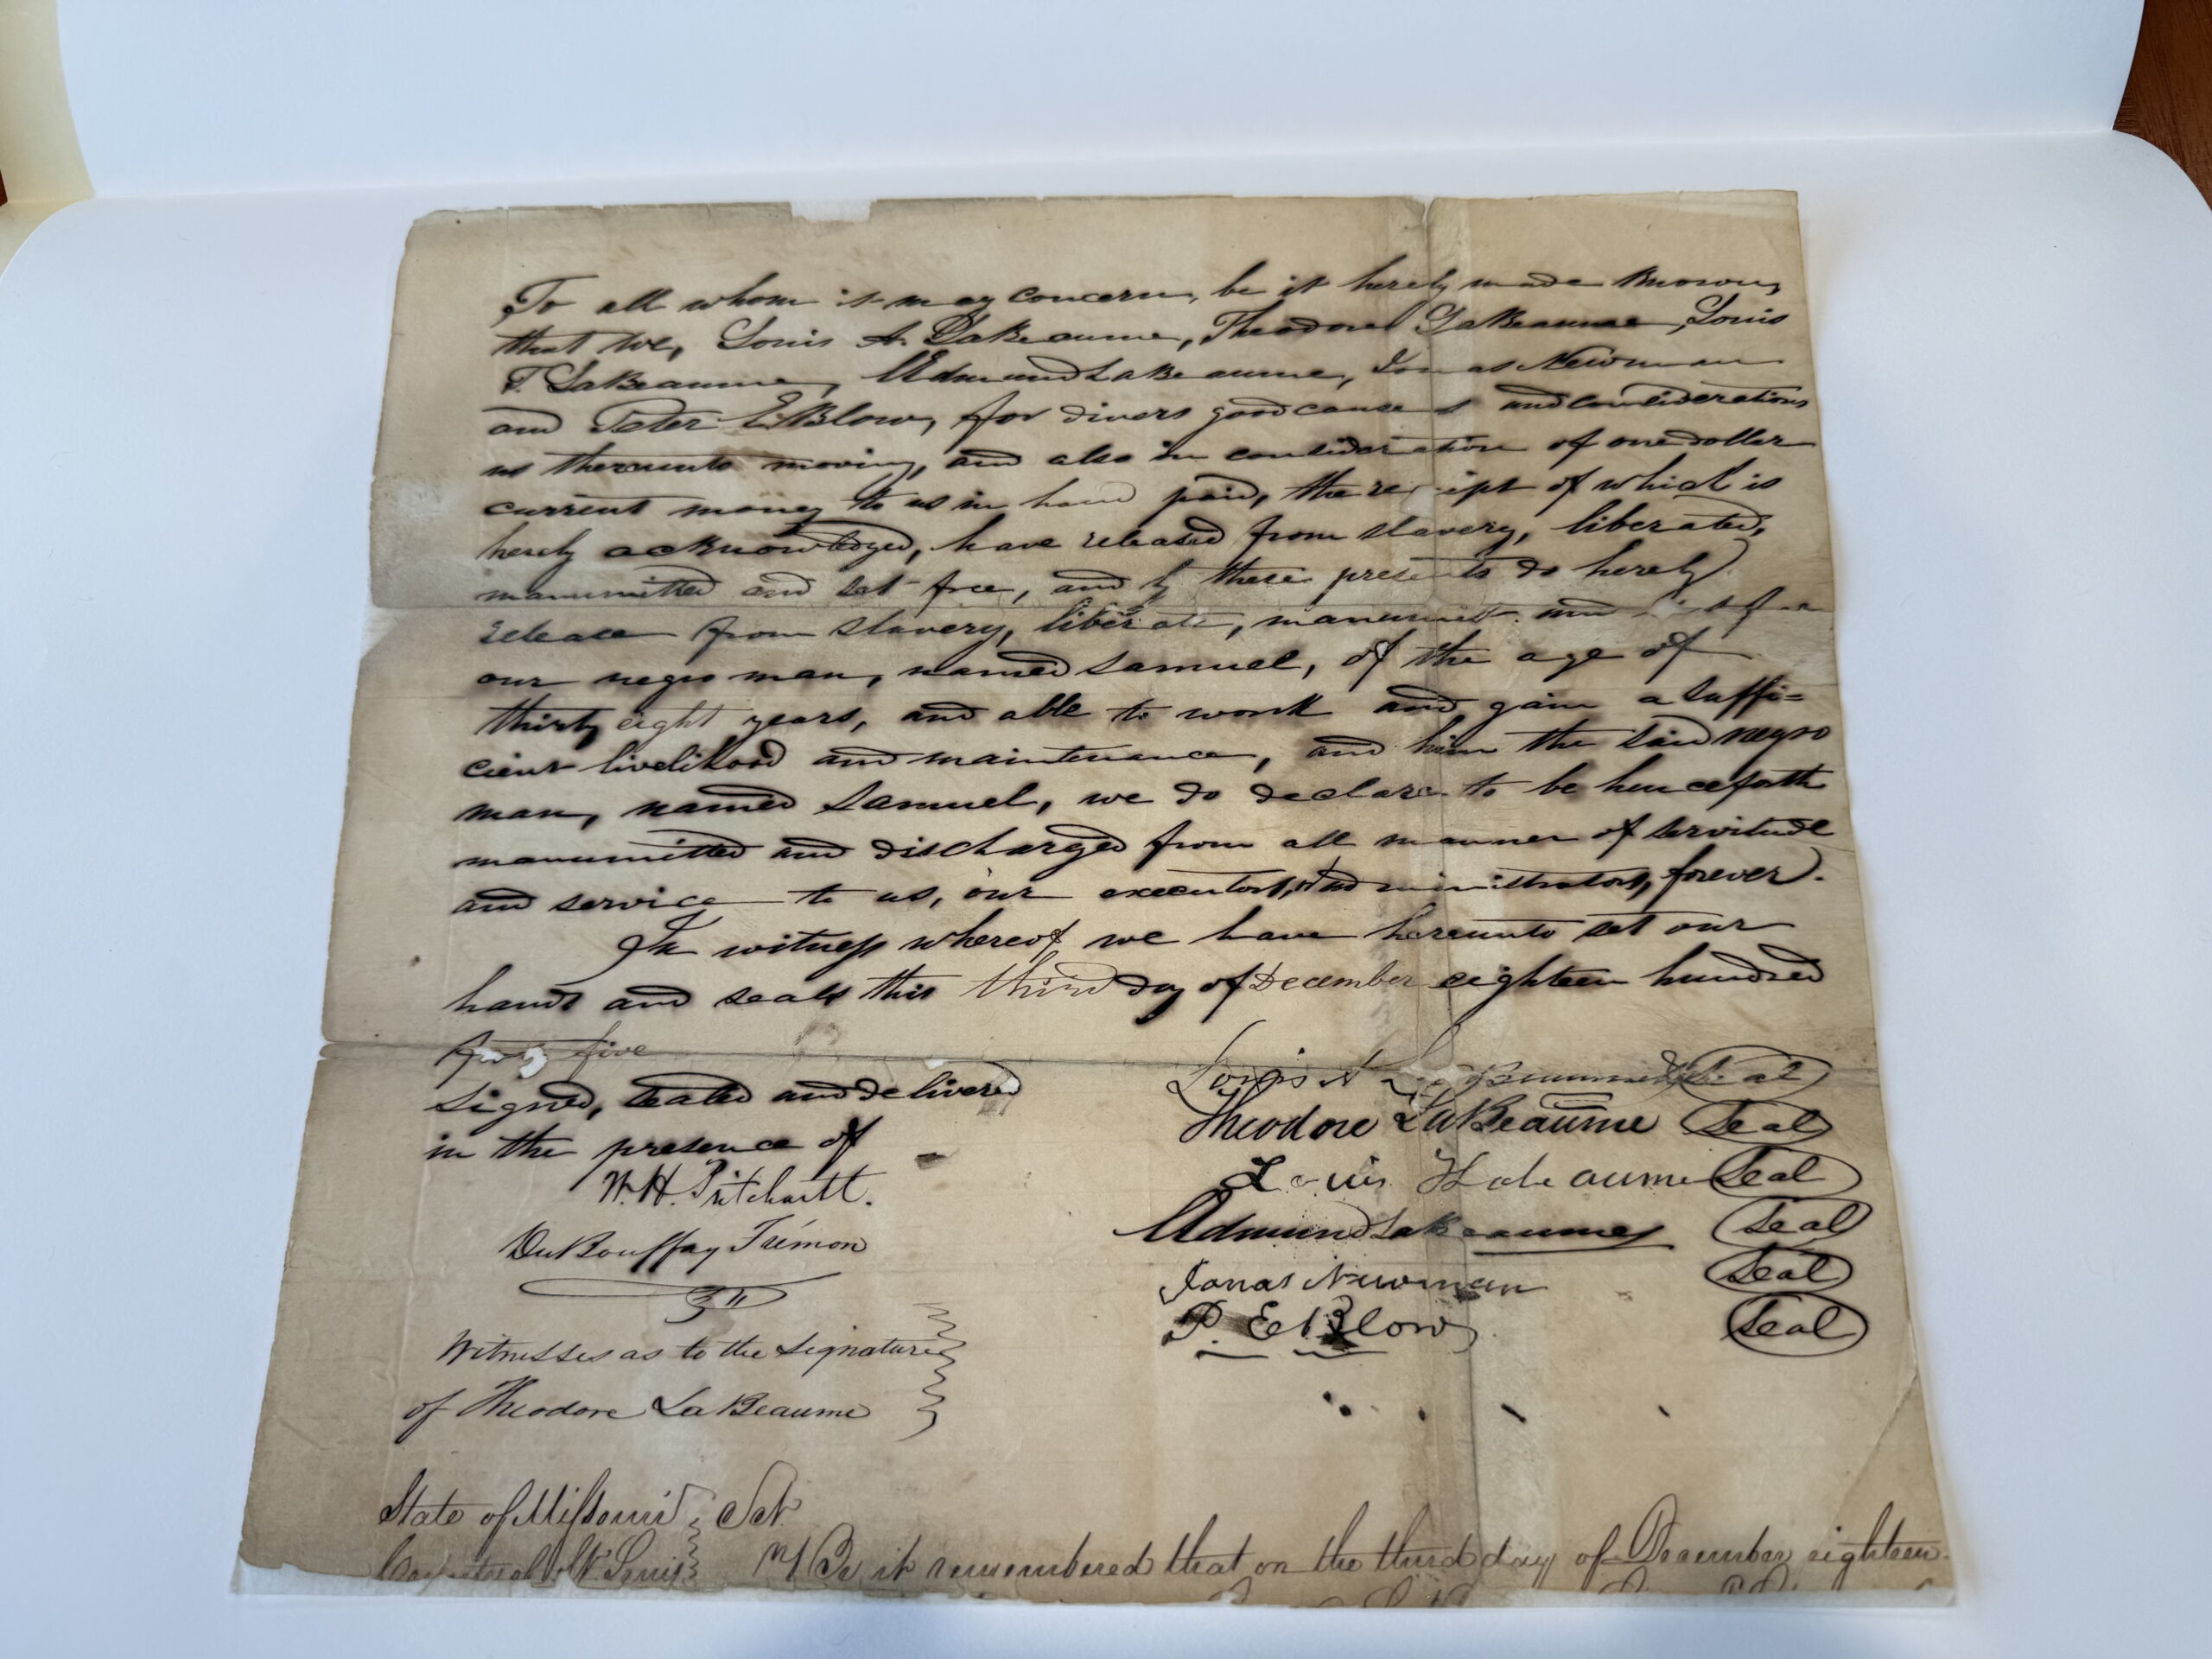 To all whom it may concern, be it hereby made known,
that we, Louis A. LaBeaume, Theodore LaBeaume, Louis
T. LaBeaume, Edmund LaBeaume, Jonas Newman
and Peter E. Blow, for divers good causes and considerations
us thereunto moving, and also in consideration of one dollar
current money to us in hand paid, the receipt of which is
hereby acknowledged, have released from slavery, liberated,
manumitted and set free, and by these presents do hereby
release from slavery, liberate, manumit and set free
our negro man, named Samuel, of the age of
thirty eight years, and able to work and gain a suffi=
cient livelihood and maintenance, and him the said negro
man, named Samuel, we do declare to be henceforth
manumitted and discharged from all manner of servitude
and service to us, our executors, administrators, forever.
In witness whereof we have hereunto set our
hands and seals this third day of December eighteen hundred
forty five
Signed, sealed and delivered
in the presence of
W. H. Pritchartt.
DuBouffay Trémon
Witnesses as to the signature
of Theodore LaBeaume
Louis A LaBeaume Seal
Theodore LaBeaume Seal
Louis T Labeaume Seal
Edmund LaBeaume Seal
Jonas Newman Seal
P. E. Blow Seal
State of Missouri Sct.
County of St. Louis Be it remembered that on the third day of December eighteen